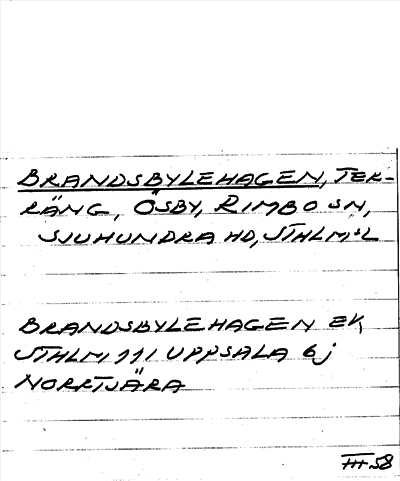 BRANDSBYLEHAGEN, TER-
RÄNG, ÖSBY, RIMBO SN,
SJUHUNDRA HD, STHLMS L
BRANDSBYLEHAGEN EK
STHLM 11 I UPPSALA 6j
NORRTJÄRA
III 58